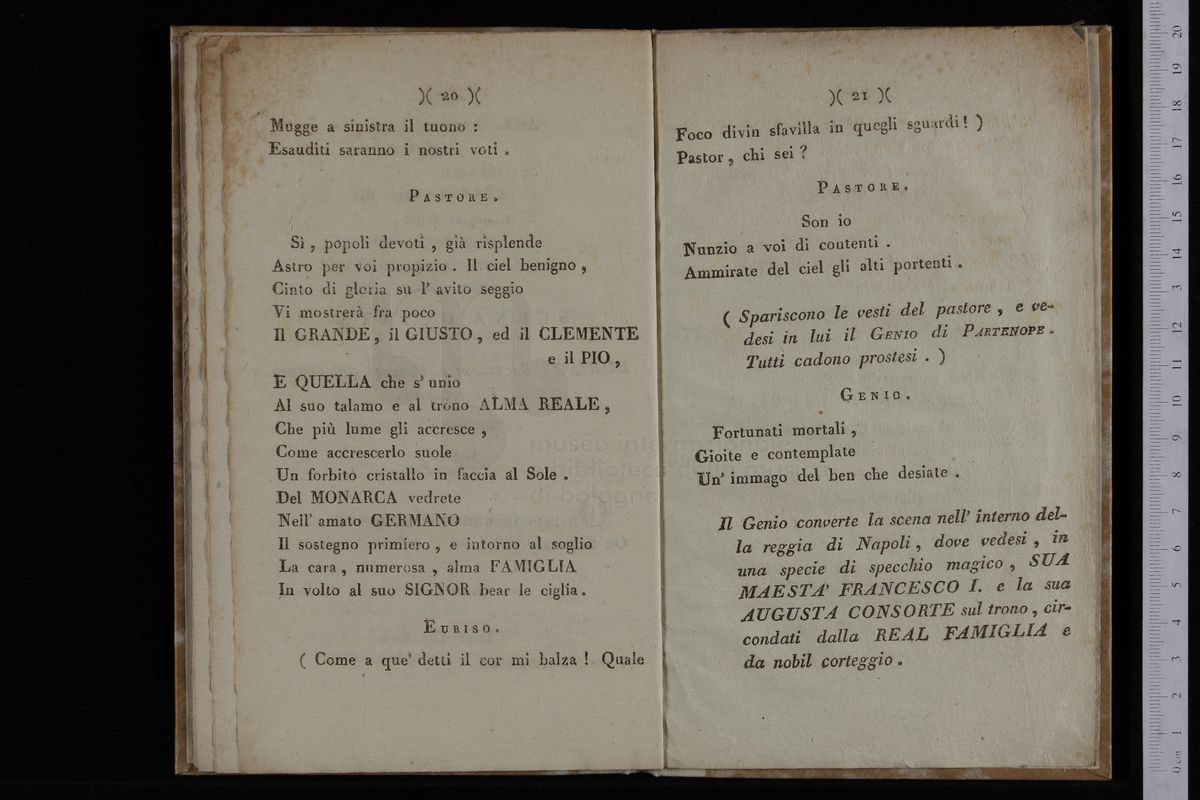 )( 20 )(
Mugge a sinistra il tuono :
Esauditi saranno i nostri voti .
PASTORE .
Sì , popoli devoti , già risplende
Astro per voi propizio . Il ciel benigno ,
Cinto di gloria su l' avito seggio
Vi mostrerà fra poco
Il GRANDE , il GIUSTO , ed il CLEMENTE
e il PIO ,
E QUELLA che s' unio
Al suo talamo e al trono ALMA REALE ,
Che più lume gli accresce ,
Come accrescerlo suole
Un forbito cristallo in faccia al Sole .
Del MONARCA vedrete
Nell' amato GERMANO
Il sostegno primiero , e intorno al soglio
La cara , numerosa , alma FAMIGLIA
In volto al suo SIGNOR bear le ciglia .
EURISO .
( Come a que' detti il cor mi balza ! Quale
)( 21 )(
Foco divin sfavilla in quegli sguardi ! )
Pastor , chi sei ?
PASTORE .
Son io
Nunzio a voi di contenti .
Ammirate del ciel gli alti portenti .
( Spariscono le vesti del pastore , e ve-
desi in lui il GENIO di PARTENOPE .
Tutti cadono prostesi . )
GENIO .
Fortunati mortali ,
Gioite e contemplate
Un' immago del ben che desiate .
Il Genio converte la scena nell' interno del-
la reggia di Napoli , dove vedesi , in
una specie di specchio magico , SUA
MAESTA' FRANCESCO I. e la sua
AUGUSTA CONSORTE sul trono , cir-
condati dalla REAL FAMIGLIA e
da nobil corteggio .
museo internazionale
biblioteca della musica
di bologna
0 cm 1 2 3 4 5 6 7 8 9 10 11 12 13 14 15 16 17 18 19 20